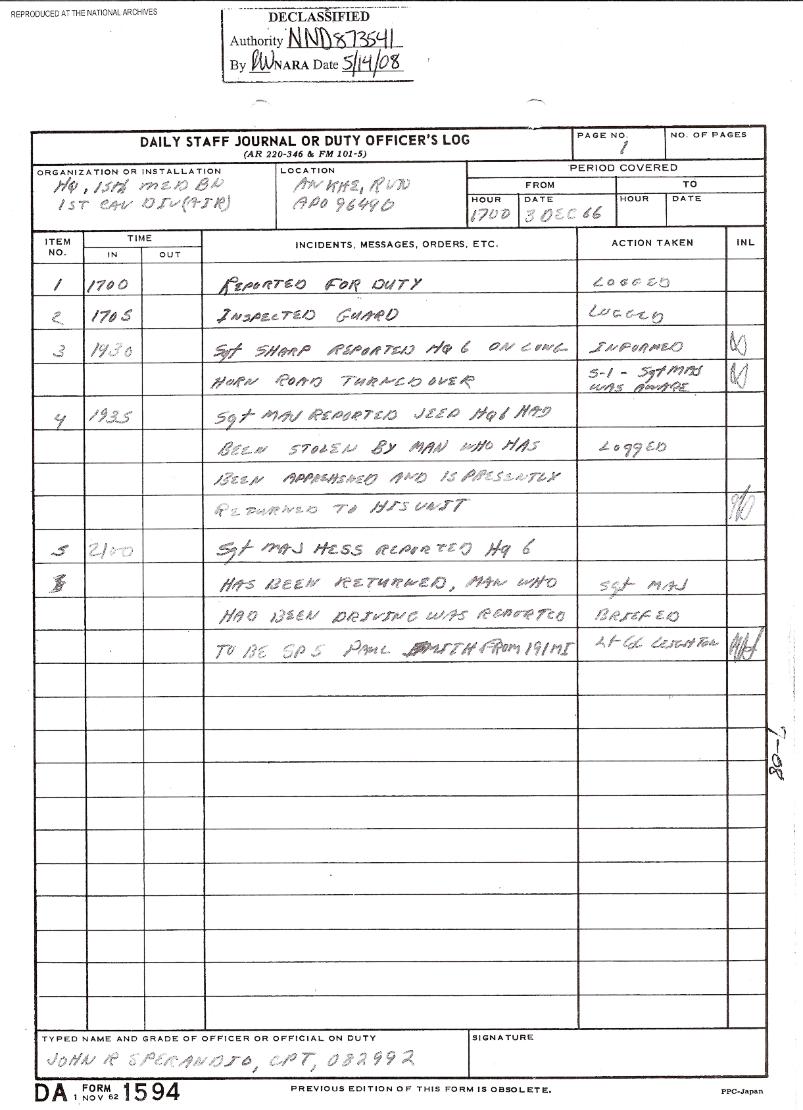 REPRODUCED AT THE NATIONAL ARCHIVES
DECLASSIFIED
Authority NND873541
By NARA Date 5/14/08
DAILY STAFF JOURNAL OR DUTY OFFICER'S LOG
(AR 220-346 & FM 101-5)
PAGE NO.
1
NO. OF PAGES
ORGANIZATION OR INSTALLATION
HQ, 15th MED BN
1ST CAV DIV (AIR)
LOCATION
AN KHE, RVN
APO 96490
PERIOD COVERED
FROM
TO
HOUR
1700
DATE
3 DEC 66
HOUR
DATE
ITEM NO.
TIME
IN
OUT
INCIDENTS, MESSAGES, ORDERS, ETC.
ACTION TAKEN
INL
1 1700 REPORTED FOR DUTY LOGGED
2 1705 INSPECTED GUARD LOGGED
3 1930 Sgt SHARP REPORTED HQ 6 ON LONG INFORMED
HORN ROAD TURNED OVER S-1 - Sgt MAJ
WAS AWARE
4 1935 Sgt MAJ REPORTED JEEP HQ6 HAD
BEEN STOLEN BY MAN WHO HAS LOGGED
BEEN AND IS PRESENTLY
RETURNED TO HIS UNIT
5 2100 Sgt MAJ HESS REPORTED HQ 6
HAS BEEN RETURNED, MAN WHO Sgt MAJ
HAD BEEN DRIVING WAS REPORTED BRIEFED
TO BE SP5 PAUL SMITH FROM 191 MI Lt Col LEIGHTON
T-08
TYPED NAME AND GRADE OF OFFICER OR OFFICIAL ON DUTY
JOHN R SPERANDIO, CPT, 082992
SIGNATURE
DA FORM 1594
1 NOV 62
PREVIOUS EDITION OF THIS FORM IS OBSOLETE.
PPC-Japan